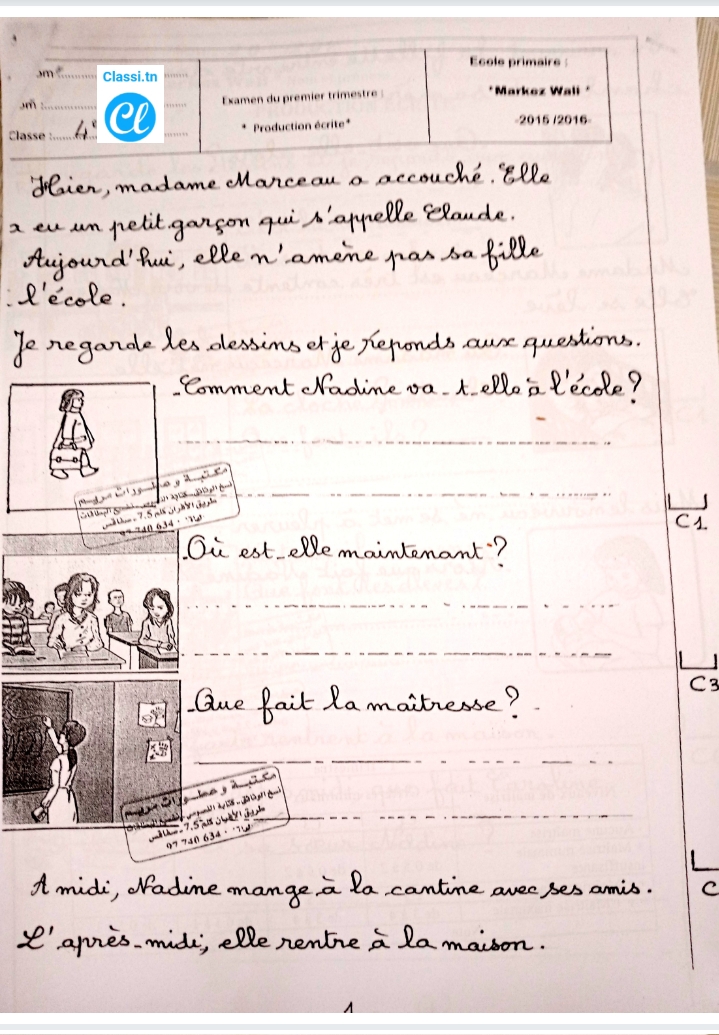 Classi.tn
Cl
om
om :
Classe : 4
Examen du premier trimestre :
* Production écrite *
Ecole primaire :
"Markez Wali "
-2015 /2016-
Hier, madame Marceau a accouché. Elle
a eu un petit garçon qui s'appelle Claude.
Aujourd'hui, elle n'amène pas sa fille
l'école.
Je regarde les dessins et je réponds aux questions.
-Comment Nadine va-t-elle à l'école ?
مكتبة و عطورات مريم
97 740 634
C1
-Où est-elle maintenant ?
C3
-Que fait la maîtresse ?
مكتبة و عطورات مريم
97 740 634
C
A midi, Nadine mange à la cantine avec ses amis.
L'après-midi, elle rentre à la maison.
1